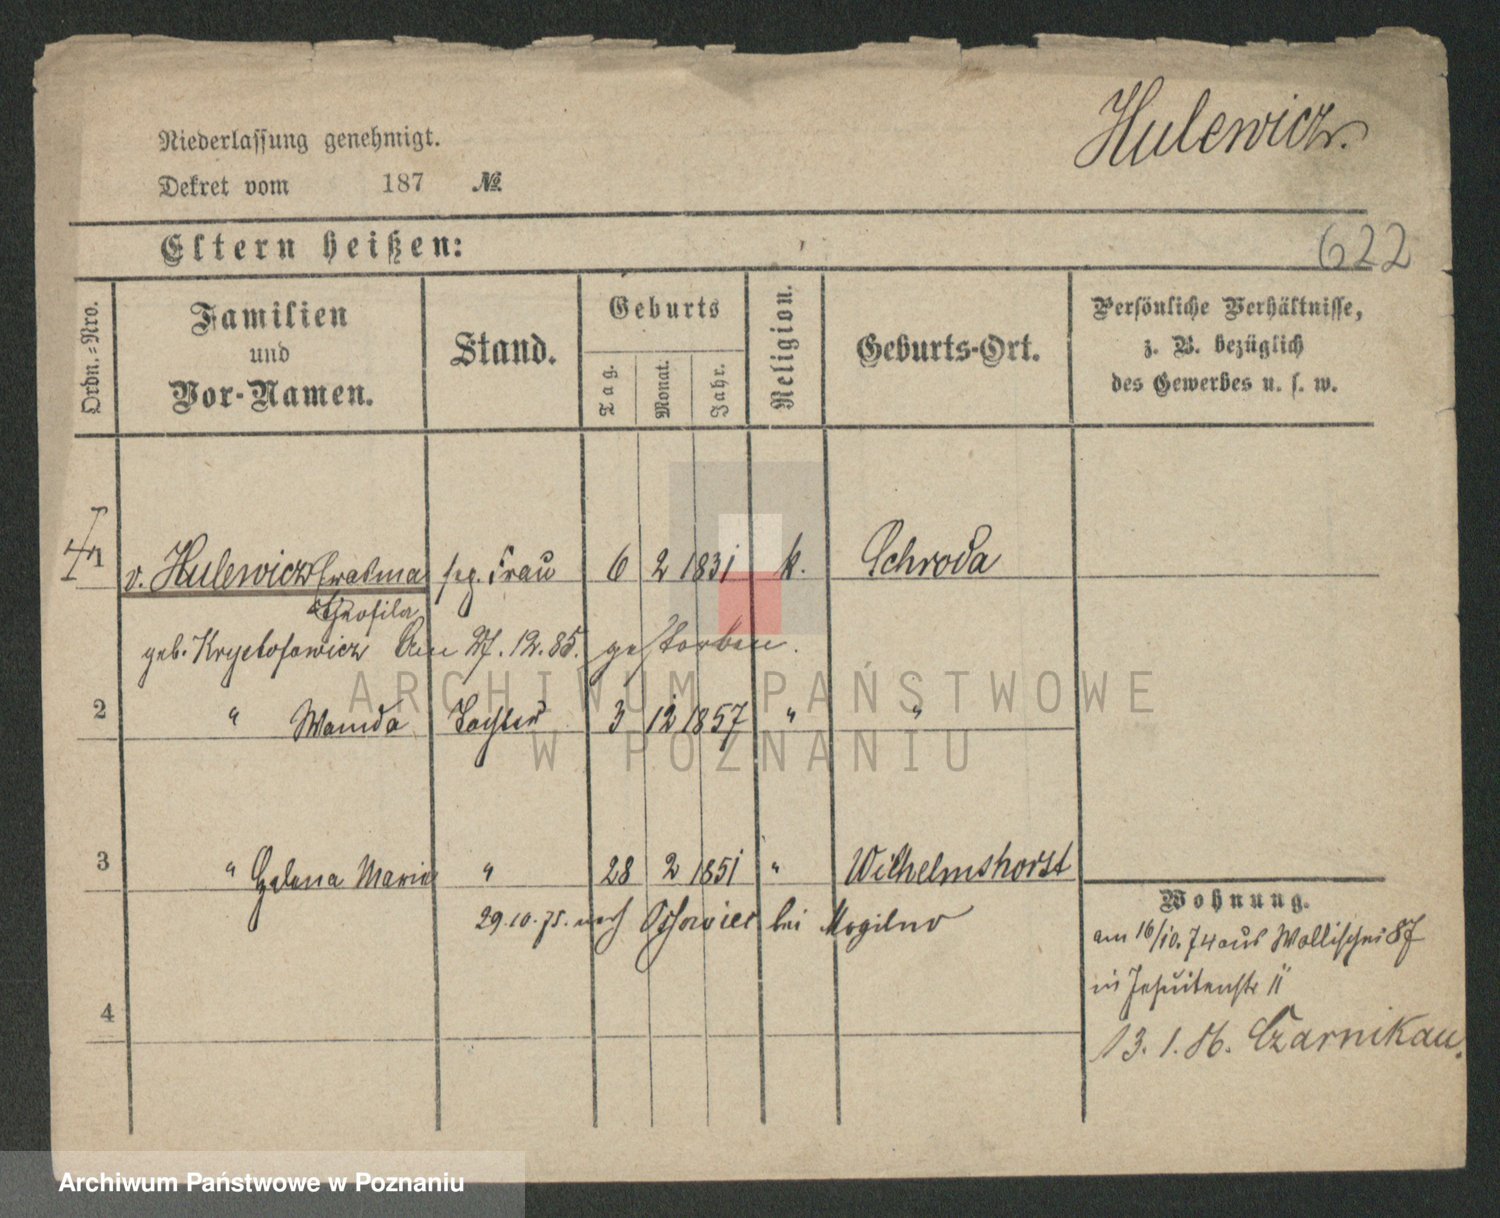 Hulewicz.
Niederlassung genehmigt.
Dekret vom 187 No.
Eltern heißen:
622
Ordn.=Nro.
Familien und Vor-Namen.
Stand.
Geburts
Tag.
Monat.
Jahr.
Religion.
Geburts-Ort.
Persönliche Verhältnisse,
z. B. bezüglich
des Gewerbes u. s. w.
1 v. Hulewicz Erasma Frau 6 2 1831 k. Schroda
Theofila
geb. Krystofowicz Am 27.12.85. gestorben.
ARCHIWUM PAŃSTWOWE
2 " Wanda Tochter 3 12 1857 " "
W POZNANIU
3 " Helena Maria " 28 2 1851 " Wilhelmshorst
29.10.75. nach bei Mogilno
4
Wohnung.
am 16/10. 74 aus Wallischei 87
in Jesuitenstr 11
13. 1. 86. Czarnikau.
Archiwum Państwowe w Poznaniu